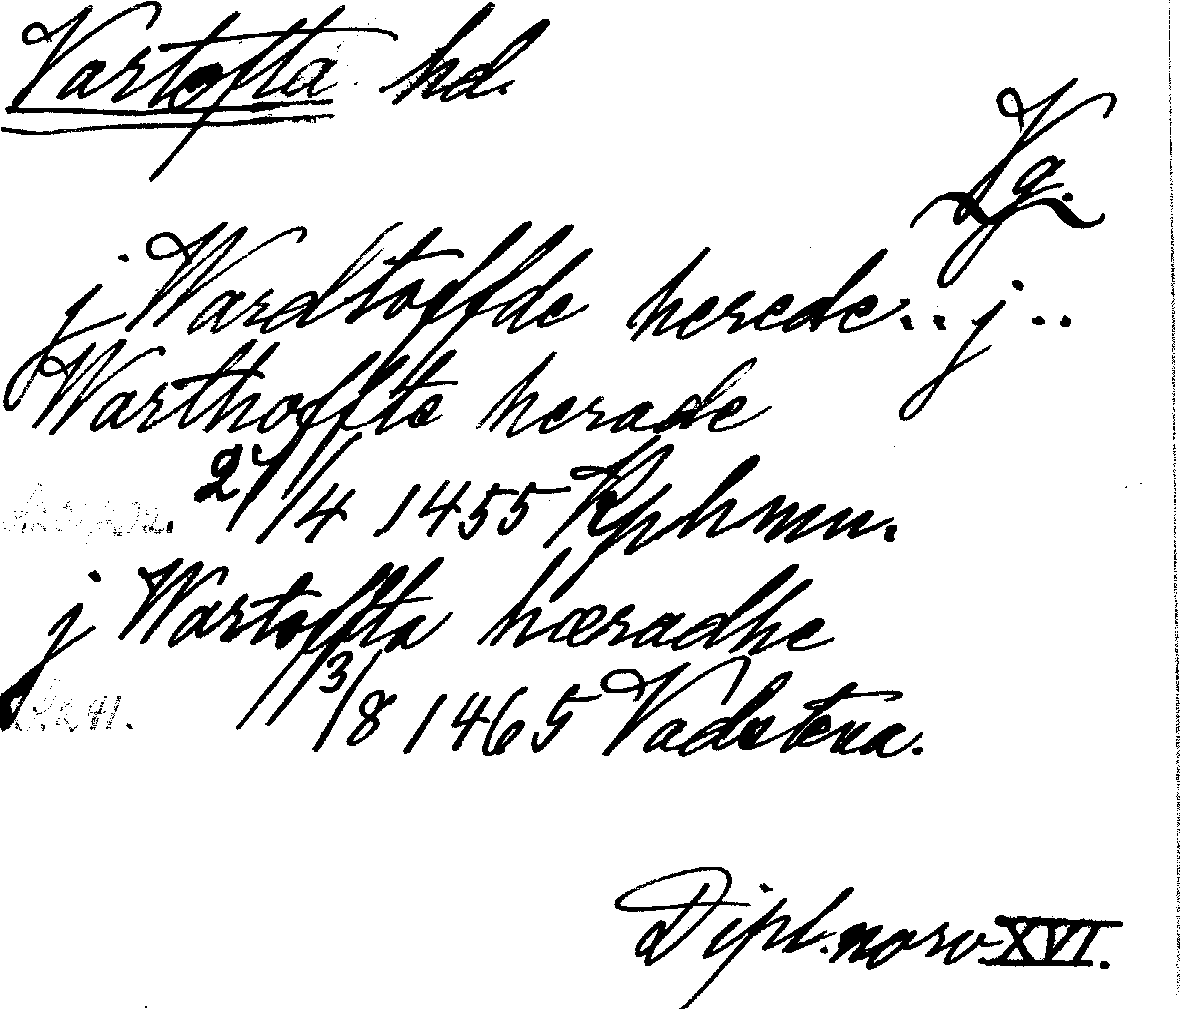 Vartofta hd.
Vg.
j Wardtoffde herede.. j..
Warthoffte herade
27/4 1455 Kphmn.
j Wartofta hæradhe
13/8 1465 Vadstena.
Dipl. norv XVI.